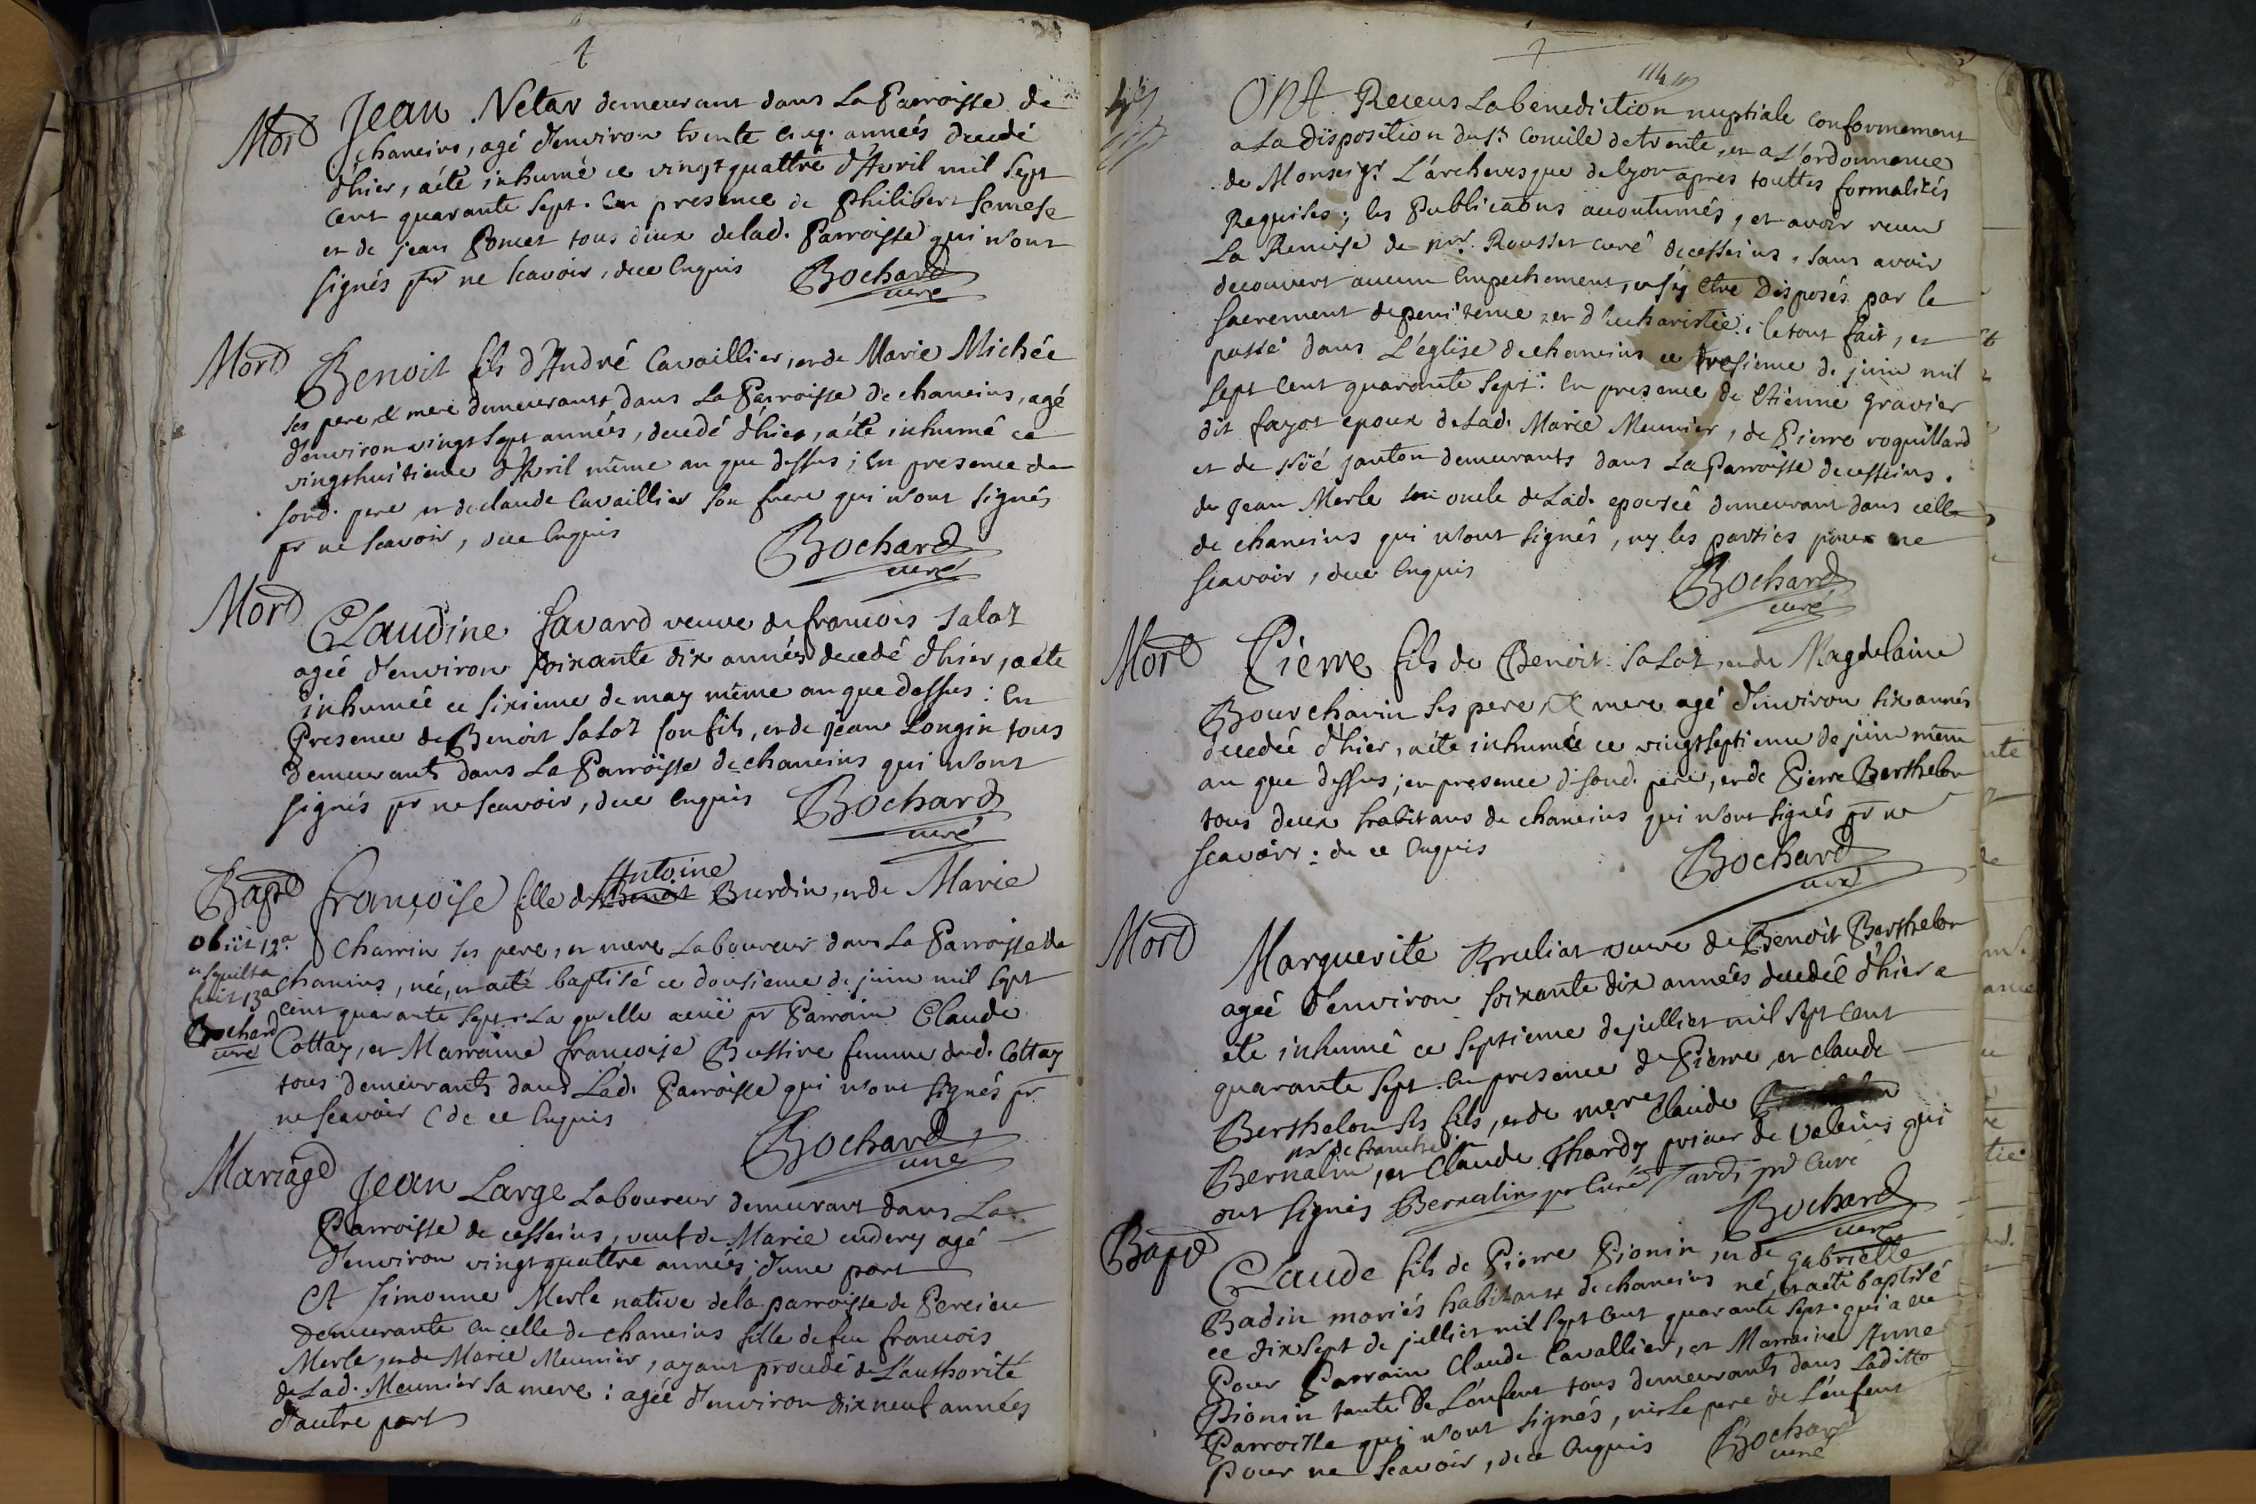 Mord Jean Netav demeurant dans La Parroisse de
chaneins, agé d'environ trente cinq années decedé
d'hier, aété inhumé ce vingt quattre d'Avril mil sept
cent quarante sept. En presence de Philibert
et de jean Poncet tous deux de lad. Parroisse qui n'ont
signés pr ne scavoir, dece Enquis Bochard
curé
Mord Benoit fils d'André Cavaillier, et de Marie Michée
ses pere, & mere demeurants dans La Parroisse de chaneins, agé
d'environ vingt sept années, decedé d'hier, aété inhumé ce
vingthuitieme d'Avril même an que dessus ; En presence de
sond. pere et de claude Cavaillier son frere qui n'ont signés
pr ne scavoir, dece Enquis Bochard
curé
Mord Claudine Favard veuve de francois salot
ageé d'environ soixante dix années decedé d'hier, aété
inhumée ce sixieme de may même an que dessus : En
Presence de Benoit salot son fils, et de jean Longin tous
demeurants dans La Parroisse de chaneins qui n'ont
signés pr ne scavoir, dece Enquis Bochard
curé
Antoine
Bapt françoise fille de Benoit Burdin, et de Marie
obiit 12a Charrin ses pere, et mere Laboureur dans La Parroisse de
et sepulta chaneins, née, et aété baptisé ce dousieme de juin mil sept
fuit 13a cent quarante sept. La quelle aeüe pr Parrain Claude
Bochard Cottay, et Marraine francoise Bussive femme dud. Cottay
curé tous demeurants dans Lad. Parroisse qui n'ont signés pr
ne scavoir de ce Enquis Bochard
curé
Mariage Jean Large Laboureur demeurant dans La
Parroisse de cesseins, veuf de Marie endery agé
d'environ vingt quattre années, d'une part
Et simonne Merle native dela parroisse de Percieu
Demeurante en celle de chaneins fille de feu francois
Merle, et de Marie Meunier, ayant procedé de L'authorité
de Lad. Meunier sa mere : agée d'environ dix neuf années
d'autre part
114
Ont Receus La benediction nuptiale conformement
a La Disposition du st. Concile de trente, et a L'ordonnance
de Monseigr. L'archevesque de lyon apres touttes formalités
Requises ; les Publicaons accoutumés, et avoir receu
La Remise de mr. Rousset curé de cesseins, sans avoir
decouvert aucun Empechement, et s'y Etre Disposés par le
sacrement de penitence, et d'Eucharistie. le tout fait, et
passé dans L'église de chaneins ce troisieme de juin mil
sept Cent quarante sept : En presence de Etienne gravier
dit fayot epoux de Lad. Marie Meunier, de Pierre roquillard
et de Noé janton demeurants dans La Parroisse de cesseins.
de Jean Merle oncle de Lad. epousée demeurant dans celle
de chaneins qui n'ont signés, ny les parties pour ne
scavoir, dece Enquis Bochard
curé
Mord Pierre fils de Benoit salot, et de Magdelaine
Bourcharin ses pere, & mere agé d'environ six années
decedée d'hier, aété inhumée ce vingtseptieme de juin même
an que dessus ; en presence de sond. pere, et de Pierre Berthelon
tous deux habitans de chaneins qui n'ont signés pr ne
scavoir : de ce Enquis Bochard
curé
Mord Marguerite Bruliat veuve de Benoit Berthelon
ageé d'environ soixante dix années decedée d'hier a
été inhumé ce septieme de julliet mil sept cent
quarante sept. En presence de Pierre, et claude
Berthelon ses fils, et de Claude
Bernalin, et Claude Thardy pricur de valeins qui
ont signés Bernalin pr Curé Tardi pr Curé
Bochard
curé
Bapt Claude fils de Pierre Pionin, et de gabrielle
Badin mariés habitants de chaneins né, et aété baptisé
ce dix sept de julliet mil sept cent quarante sept. qui a eu
Pour Parrain Claude Cavallier, et Marraine Anne
Pionin tante de L'enfant tous demeurants dans Laditte
Parroisse qui n'ont signés, ni Le pere de L'enfent
Pour ne scavoir, de ce Enquis Bochard
curé